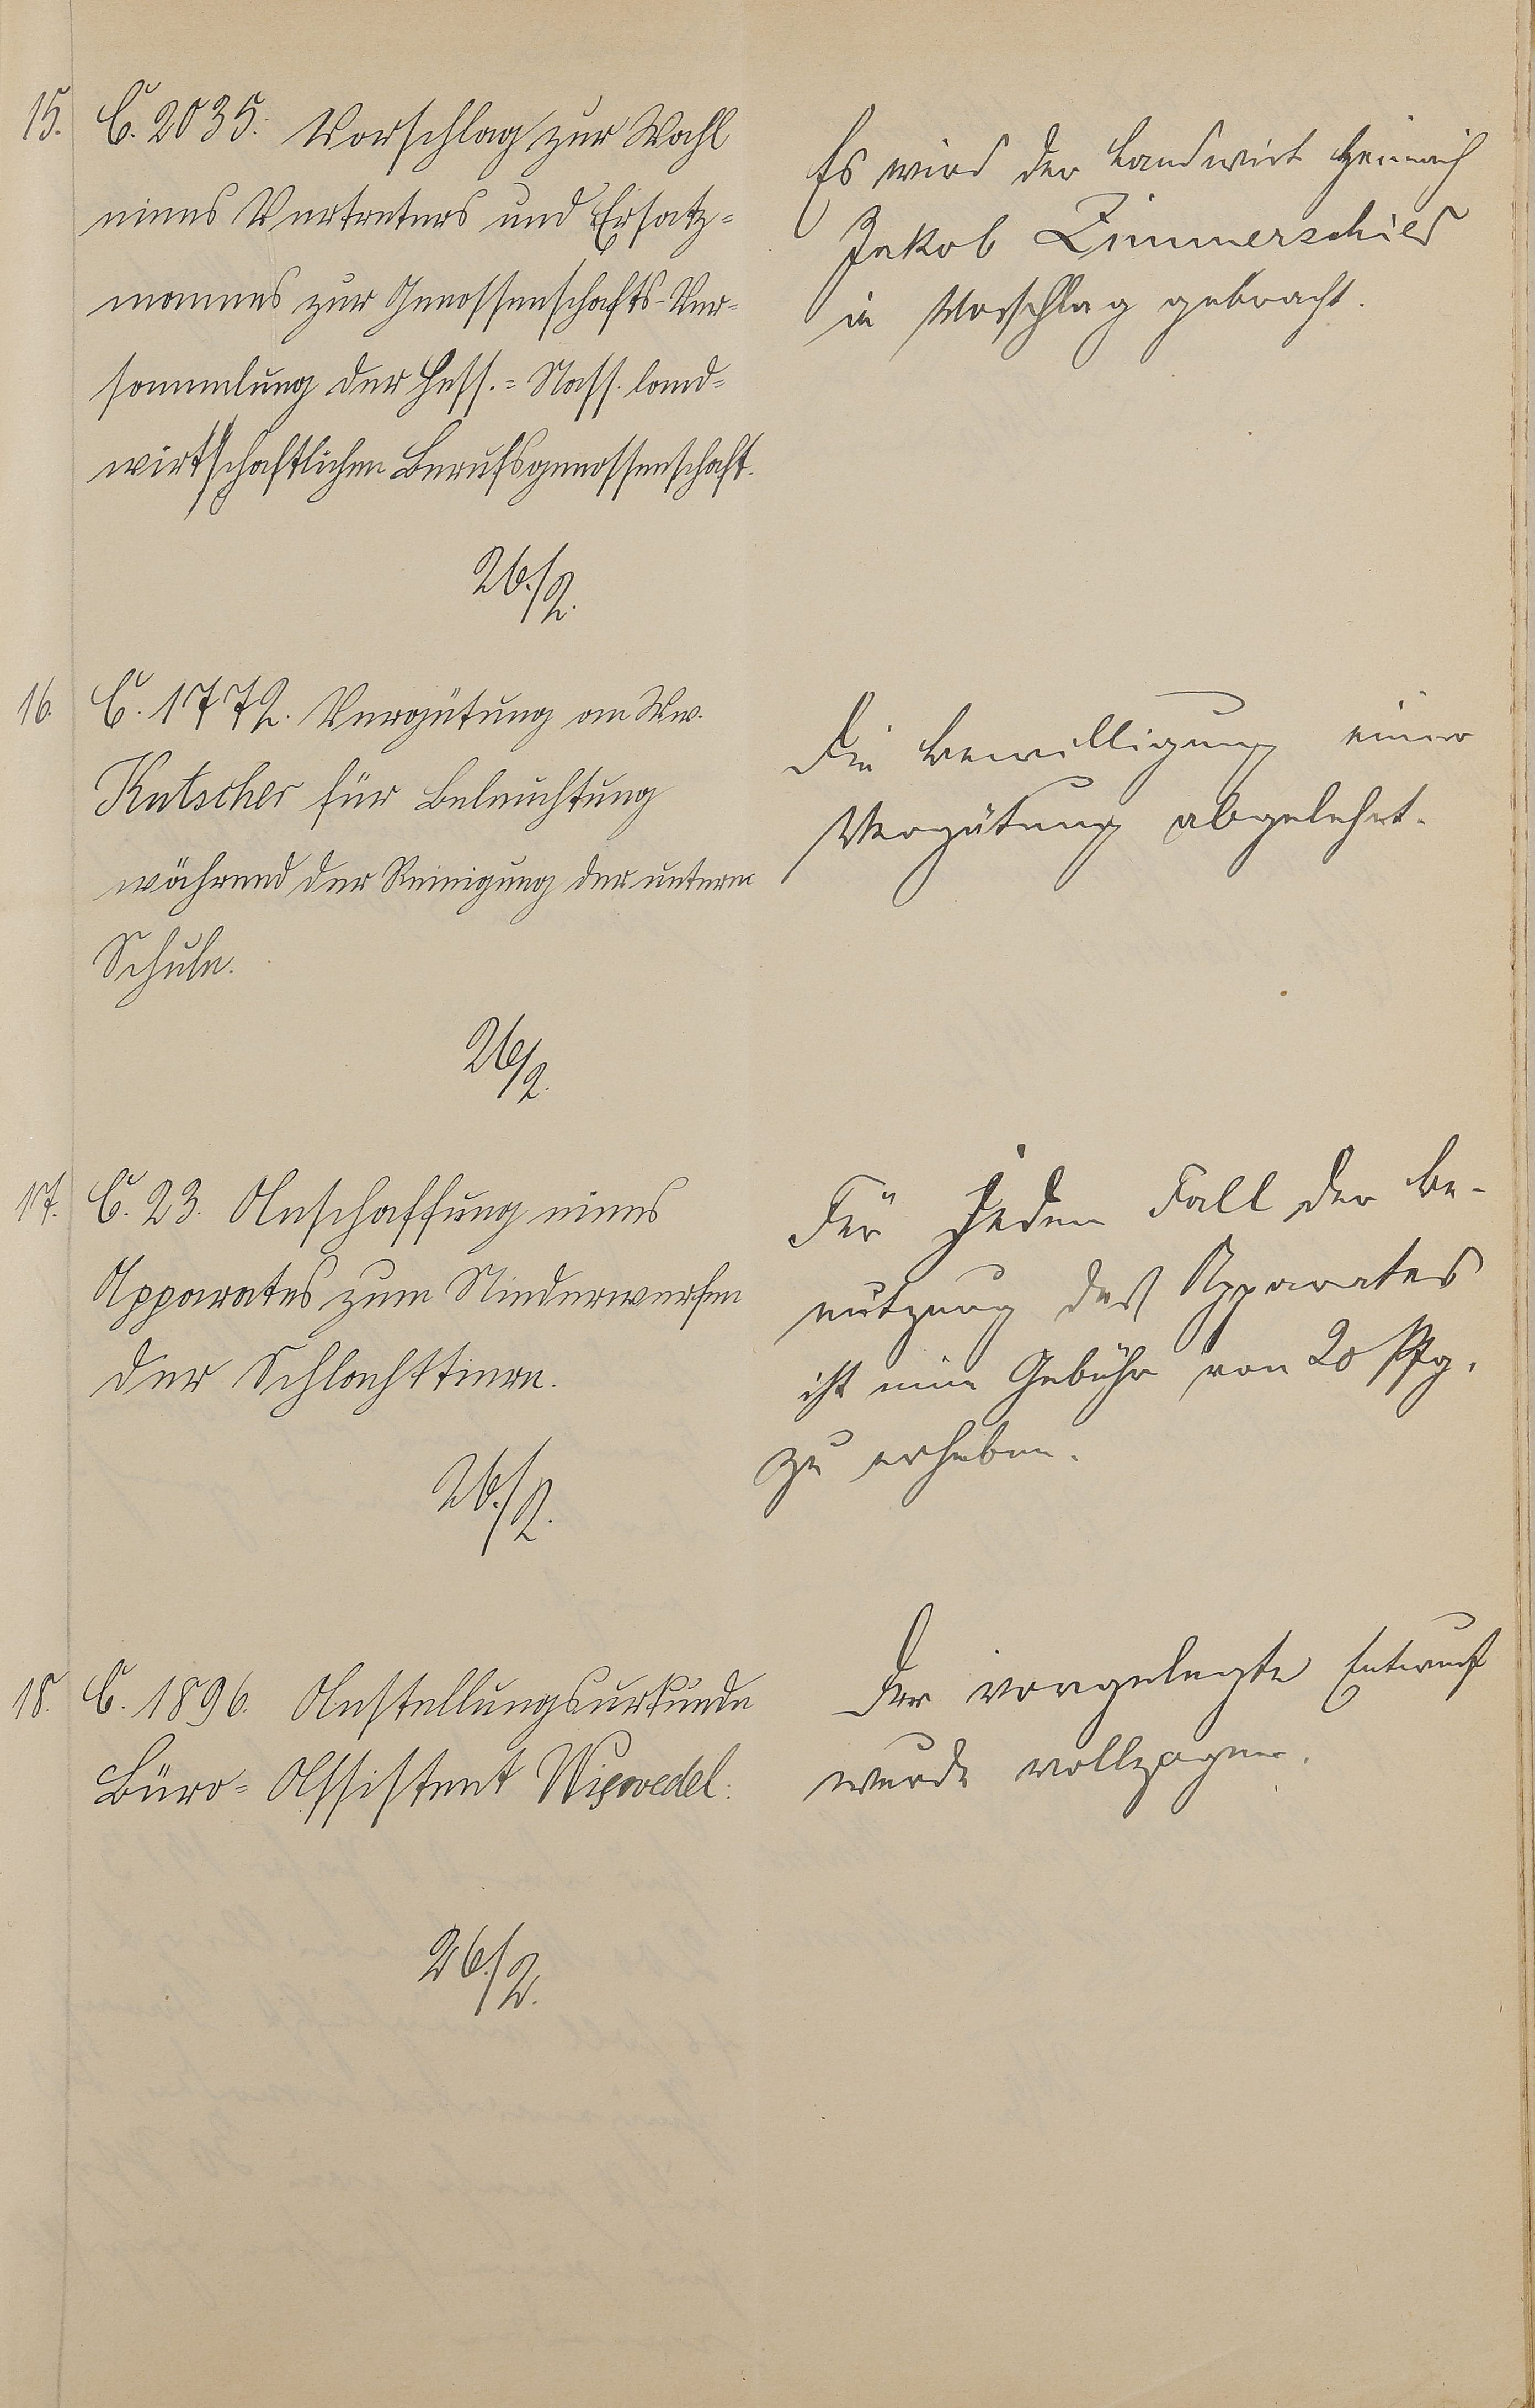 15. C. 2035. Vorschlag zur Wahl
eines Vertreters und Ersatz=
mannes zur Genossenschafts-Ver=
sammlung der Hess.=Nass. land=
wirtschaftlichen Berufsgenossenschaft.
26./2.
Es wird der Landwirt Heinrich
Jakob Zimmerschied
in Vorschlag gebracht.
16. C. 1772. Vergütung an Ww.
Kutscher für Beleuchtung
während der Reinigung der unteren
Schule.
26/2.
Die Bewilligung einer
Vergütung abgelehnt.
17. C. 23. Anschaffung eines
Apparates zum Niederwerfen
der Schlachttiere.
26./2.
Für jeden Fall der Be-
nutzung des Apparates
ist eine Gebühr von 20 Pfg.
zu erheben.
18. C. 1896. Anstellungsurkunde
Büro=Assistent
26./2.
Der vorgelegte Entwurf
wurde vollzogen.